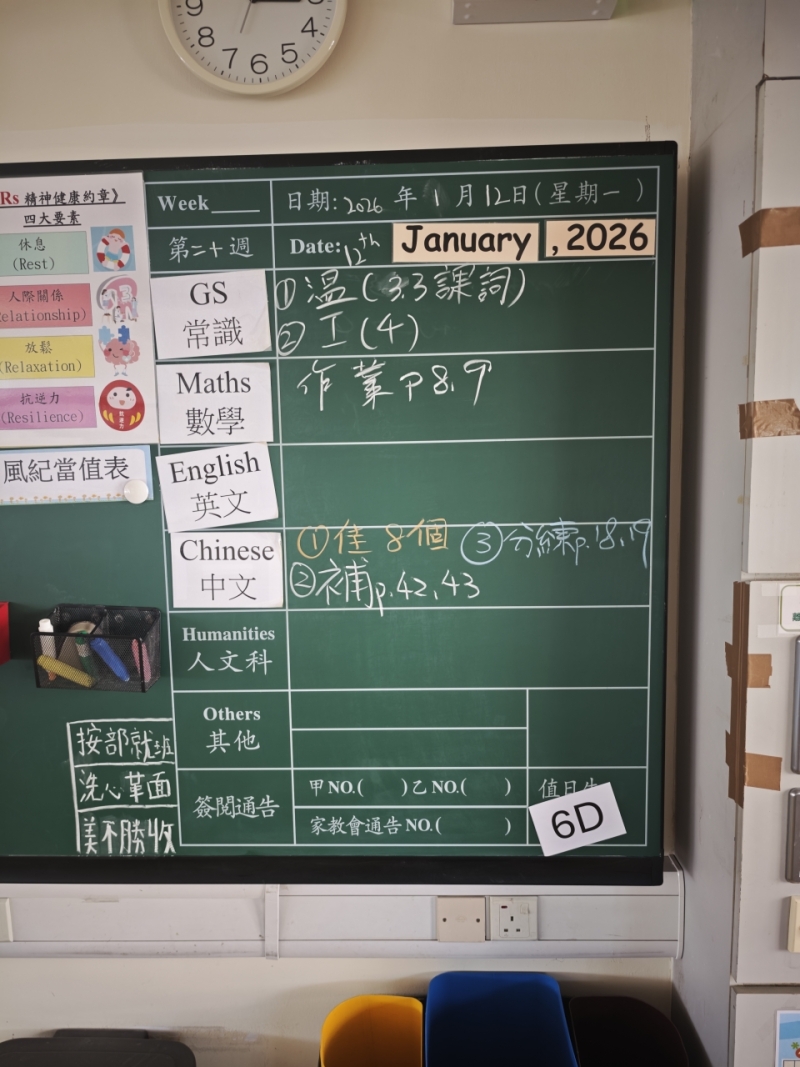 9 3
8 4
7 6 5
Rs 精神健康約章》
四大要素
休息
(Rest)
人際關係
Relationship)
放鬆
(Relaxation)
抗逆力
(Resilience)
風紀當值表
Week____ 日期: 2026 年 1 月 12日(星期一)
第二十週 Date: 12th January , 2026
GS
常識
①溫(3.3課詞)
②工(4)
Maths
數學
作業 P8、9
English
英文
Chinese
中文
①佳 8個 ③分練p.18、19
②補p.42、43
Humanities
人文科
Others
其他
簽閱通告
甲NO.( )乙NO.( ) 值日生
家教會通告NO.( )
6D
按部就班
洗心革面
美不勝收